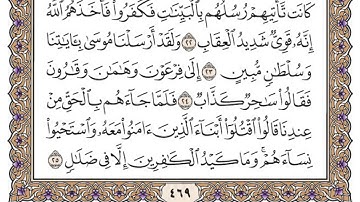 كَانَت تَّأْتِيهِمْ رُسُلُهُم بِالْبَيِّنَٰتِ فَكَفَرُوا۟ فَأَخَذَهُمُ ٱللَّهُ
إِنَّهُۥ قَوِىٌّ شَدِيدُ ٱلْعِقَابِ ٢٢ وَلَقَدْ أَرْسَلْنَا مُوسَىٰ بِـَٔايَٰتِنَا
وَسُلْطَٰنٍ مُّبِينٍ ٢٣ إِلَىٰ فِرْعَوْنَ وَهَٰمَٰنَ وَقَٰرُونَ
فَقَالُوا۟ سَٰحِرٌ كَذَّابٌ ٢٤ فَلَمَّا جَآءَهُم بِٱلْحَقِّ مِنْ
عِندِنَا قَالُوا۟ ٱقْتُلُوٓا۟ أَبْنَآءَ ٱلَّذِينَ ءَامَنُوا۟ مَعَهُۥ وَٱسْتَحْيُوا۟
نِسَآءَهُمْ ۚ وَمَا كَيْدُ ٱلْكَٰفِرِينَ إِلَّا فِى ضَلَٰلٍ ٢٥
٤٦٩